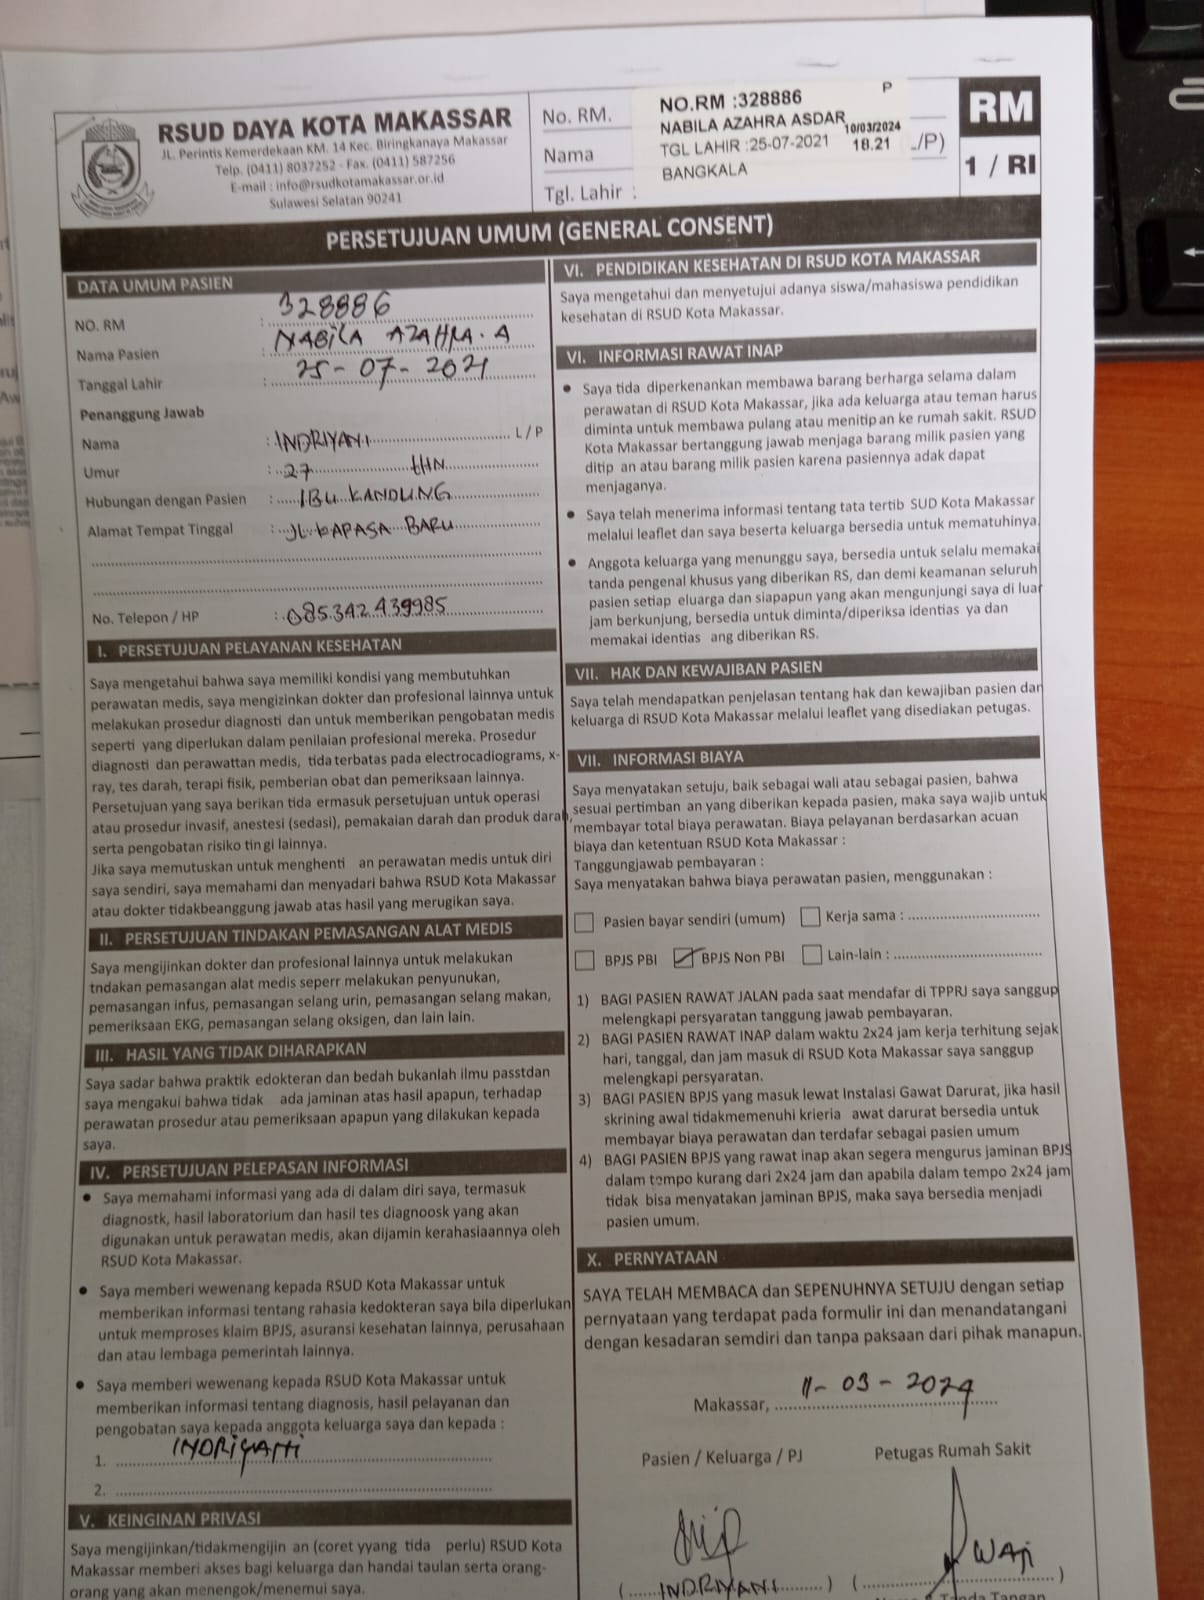 RSUD DAYA KOTA MAKASSAR
JL. Perintis Kemerdekaan KM. 14 Kec. Biringkanaya Makassar
Telp. (0411) 8037252 - Fax. (0411) 587256
E-mail : info@rsudkotamakassar.or.id
Sulawesi Selatan 90241
No. RM.
Nama
Tgl. Lahir :
NO.RM :328886 P
NABILA AZAHRA ASDAR
10/03/2024
TGL LAHIR :25-07-2021 18.21
BANGKALA
/P)
RM
1 / RI
PERSETUJUAN UMUM (GENERAL CONSENT)
DATA UMUM PASIEN
NO. RM : 328886
Nama Pasien : NABILA AZAHRA. A
Tanggal Lahir : 25 - 07 - 2021
Penanggung Jawab
Nama : INDRIYANI L / P
Umur : 27 tHN
Hubungan dengan Pasien : IBU KANDUNG
Alamat Tempat Tinggal : JL. KAPASA BARU
No. Telepon / HP : 085342439985
I. PERSETUJUAN PELAYANAN KESEHATAN
Saya mengetahui bahwa saya memiliki kondisi yang membutuhkan
perawatan medis, saya mengizinkan dokter dan profesional lainnya untuk
melakukan prosedur diagnosti dan untuk memberikan pengobatan medis
seperti yang diperlukan dalam penilaian profesional mereka. Prosedur
diagnosti dan perawattan medis, tida terbatas pada electrocadiograms, x-
ray, tes darah, terapi fisik, pemberian obat dan pemeriksaan lainnya.
Persetujuan yang saya berikan tida ermasuk persetujuan untuk operasi
atau prosedur invasif, anestesi (sedasi), pemakaian darah dan produk darah,
serta pengobatan risiko tin gi lainnya.
Jika saya memutuskan untuk menghenti an perawatan medis untuk diri
saya sendiri, saya memahami dan menyadari bahwa RSUD Kota Makassar
atau dokter tidakbeanggung jawab atas hasil yang merugikan saya.
II. PERSETUJUAN TINDAKAN PEMASANGAN ALAT MEDIS
Saya mengijinkan dokter dan profesional lainnya untuk melakukan
tndakan pemasangan alat medis seperr melakukan penyunukan,
pemasangan infus, pemasangan selang urin, pemasangan selang makan,
pemeriksaan EKG, pemasangan selang oksigen, dan lain lain.
III. HASIL YANG TIDAK DIHARAPKAN
Saya sadar bahwa praktik edokteran dan bedah bukanlah ilmu passtdan
saya mengakui bahwa tidak ada jaminan atas hasil apapun, terhadap
perawatan prosedur atau pemeriksaan apapun yang dilakukan kepada
saya.
IV. PERSETUJUAN PELEPASAN INFORMASI
• Saya memahami informasi yang ada di dalam diri saya, termasuk
diagnostk, hasil laboratorium dan hasil tes diagnoosk yang akan
digunakan untuk perawatan medis, akan dijamin kerahasiaannya oleh
RSUD Kota Makassar.
• Saya memberi wewenang kepada RSUD Kota Makassar untuk
memberikan informasi tentang rahasia kedokteran saya bila diperlukan
untuk memproses klaim BPJS, asuransi kesehatan lainnya, perusahaan
dan atau lembaga pemerintah lainnya.
• Saya memberi wewenang kepada RSUD Kota Makassar untuk
memberikan informasi tentang diagnosis, hasil pelayanan dan
pengobatan saya kepada anggota keluarga saya dan kepada :
1. INDRIYANI
2.
V. KEINGINAN PRIVASI
Saya mengijinkan/tidakmengijin an (coret yyang tida perlu) RSUD Kota
Makassar memberi akses bagi keluarga dan handai taulan serta orang-
orang yang akan menengok/menemui saya.
VI. PENDIDIKAN KESEHATAN DI RSUD KOTA MAKASSAR
Saya mengetahui dan menyetujui adanya siswa/mahasiswa pendidikan
kesehatan di RSUD Kota Makassar.
VI. INFORMASI RAWAT INAP
• Saya tida diperkenankan membawa barang berharga selama dalam
perawatan di RSUD Kota Makassar, jika ada keluarga atau teman harus
diminta untuk membawa pulang atau menitip an ke rumah sakit. RSUD
Kota Makassar bertanggung jawab menjaga barang milik pasien yang
ditip an atau barang milik pasien karena pasiennya adak dapat
menjaganya.
• Saya telah menerima informasi tentang tata tertib SUD Kota Makassar
melalui leaflet dan saya beserta keluarga bersedia untuk mematuhinya.
• Anggota keluarga yang menunggu saya, bersedia untuk selalu memakai
tanda pengenal khusus yang diberikan RS, dan demi keamanan seluruh
pasien setiap eluarga dan siapapun yang akan mengunjungi saya di luar
jam berkunjung, bersedia untuk diminta/diperiksa identias ya dan
memakai identias ang diberikan RS.
VII. HAK DAN KEWAJIBAN PASIEN
Saya telah mendapatkan penjelasan tentang hak dan kewajiban pasien dan
keluarga di RSUD Kota Makassar melalui leaflet yang disediakan petugas.
VII. INFORMASI BIAYA
Saya menyatakan setuju, baik sebagai wali atau sebagai pasien, bahwa
sesuai pertimban an yang diberikan kepada pasien, maka saya wajib untuk
membayar total biaya perawatan. Biaya pelayanan berdasarkan acuan
biaya dan ketentuan RSUD Kota Makassar :
Tanggungjawab pembayaran :
Saya menyatakan bahwa biaya perawatan pasien, menggunakan :
Pasien bayar sendiri (umum) Kerja sama :
BPJS PBI BPJS Non PBI Lain-lain :
1) BAGI PASIEN RAWAT JALAN pada saat mendafar di TPPRJ saya sanggup
melengkapi persyaratan tanggung jawab pembayaran.
2) BAGI PASIEN RAWAT INAP dalam waktu 2x24 jam kerja terhitung sejak
hari, tanggal, dan jam masuk di RSUD Kota Makassar saya sanggup
melengkapi persyaratan.
3) BAGI PASIEN BPJS yang masuk lewat Instalasi Gawat Darurat, jika hasil
skrining awal tidakmemenuhi krieria awat darurat bersedia untuk
membayar biaya perawatan dan terdafar sebagai pasien umum
4) BAGI PASIEN BPJS yang rawat inap akan segera mengurus jaminan BPJS
dalam tempo kurang dari 2x24 jam dan apabila dalam tempo 2x24 jam
tidak bisa menyatakan jaminan BPJS, maka saya bersedia menjadi
pasien umum.
X. PERNYATAAN
SAYA TELAH MEMBACA dan SEPENUHNYA SETUJU dengan setiap
pernyataan yang terdapat pada formulir ini dan menandatangani
dengan kesadaran semdiri dan tanpa paksaan dari pihak manapun.
Makassar, 11- 03 - 2024
Pasien / Keluarga / PJ Petugas Rumah Sakit
( INDRIYANI ) ( )
Tanda Tangan